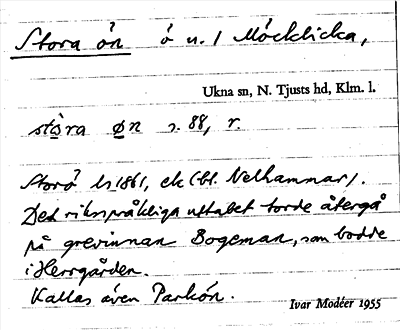 Stora ön   ö u. 1 Möcklicka,
Ukna sn, N. Tjusts hd, Klm. l.
stòra øn s. 88, r.
Storö ls 1861, ek (bl. Nelhammar).
Det riksspråkliga uttalet torde återgå
på grevinnan Bogeman, som bodde
i Herrgården.
Kallas även Parkön.
Ivar Modéer 1955